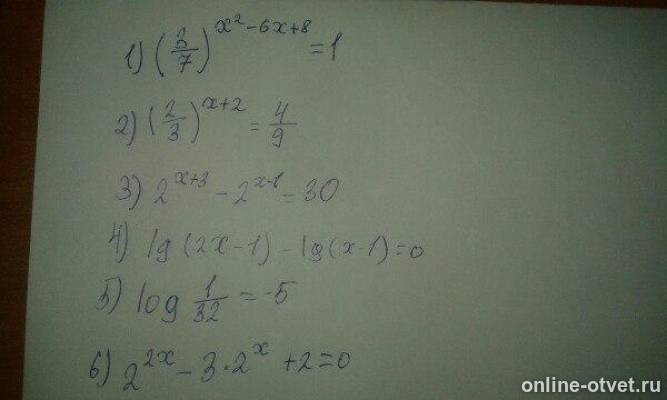 1) (3/7)^(x²-6x+8) = 1
2) (2/3)^(x+2) = 4/9
3) 2^(x+3) - 2^(x-1) = 30
4) lg(2x-1) - lg(x-1) = 0
5) log 1/32 = -5
6) 2^(2x) - 3·2^x + 2 = 0
online-otvet.ru